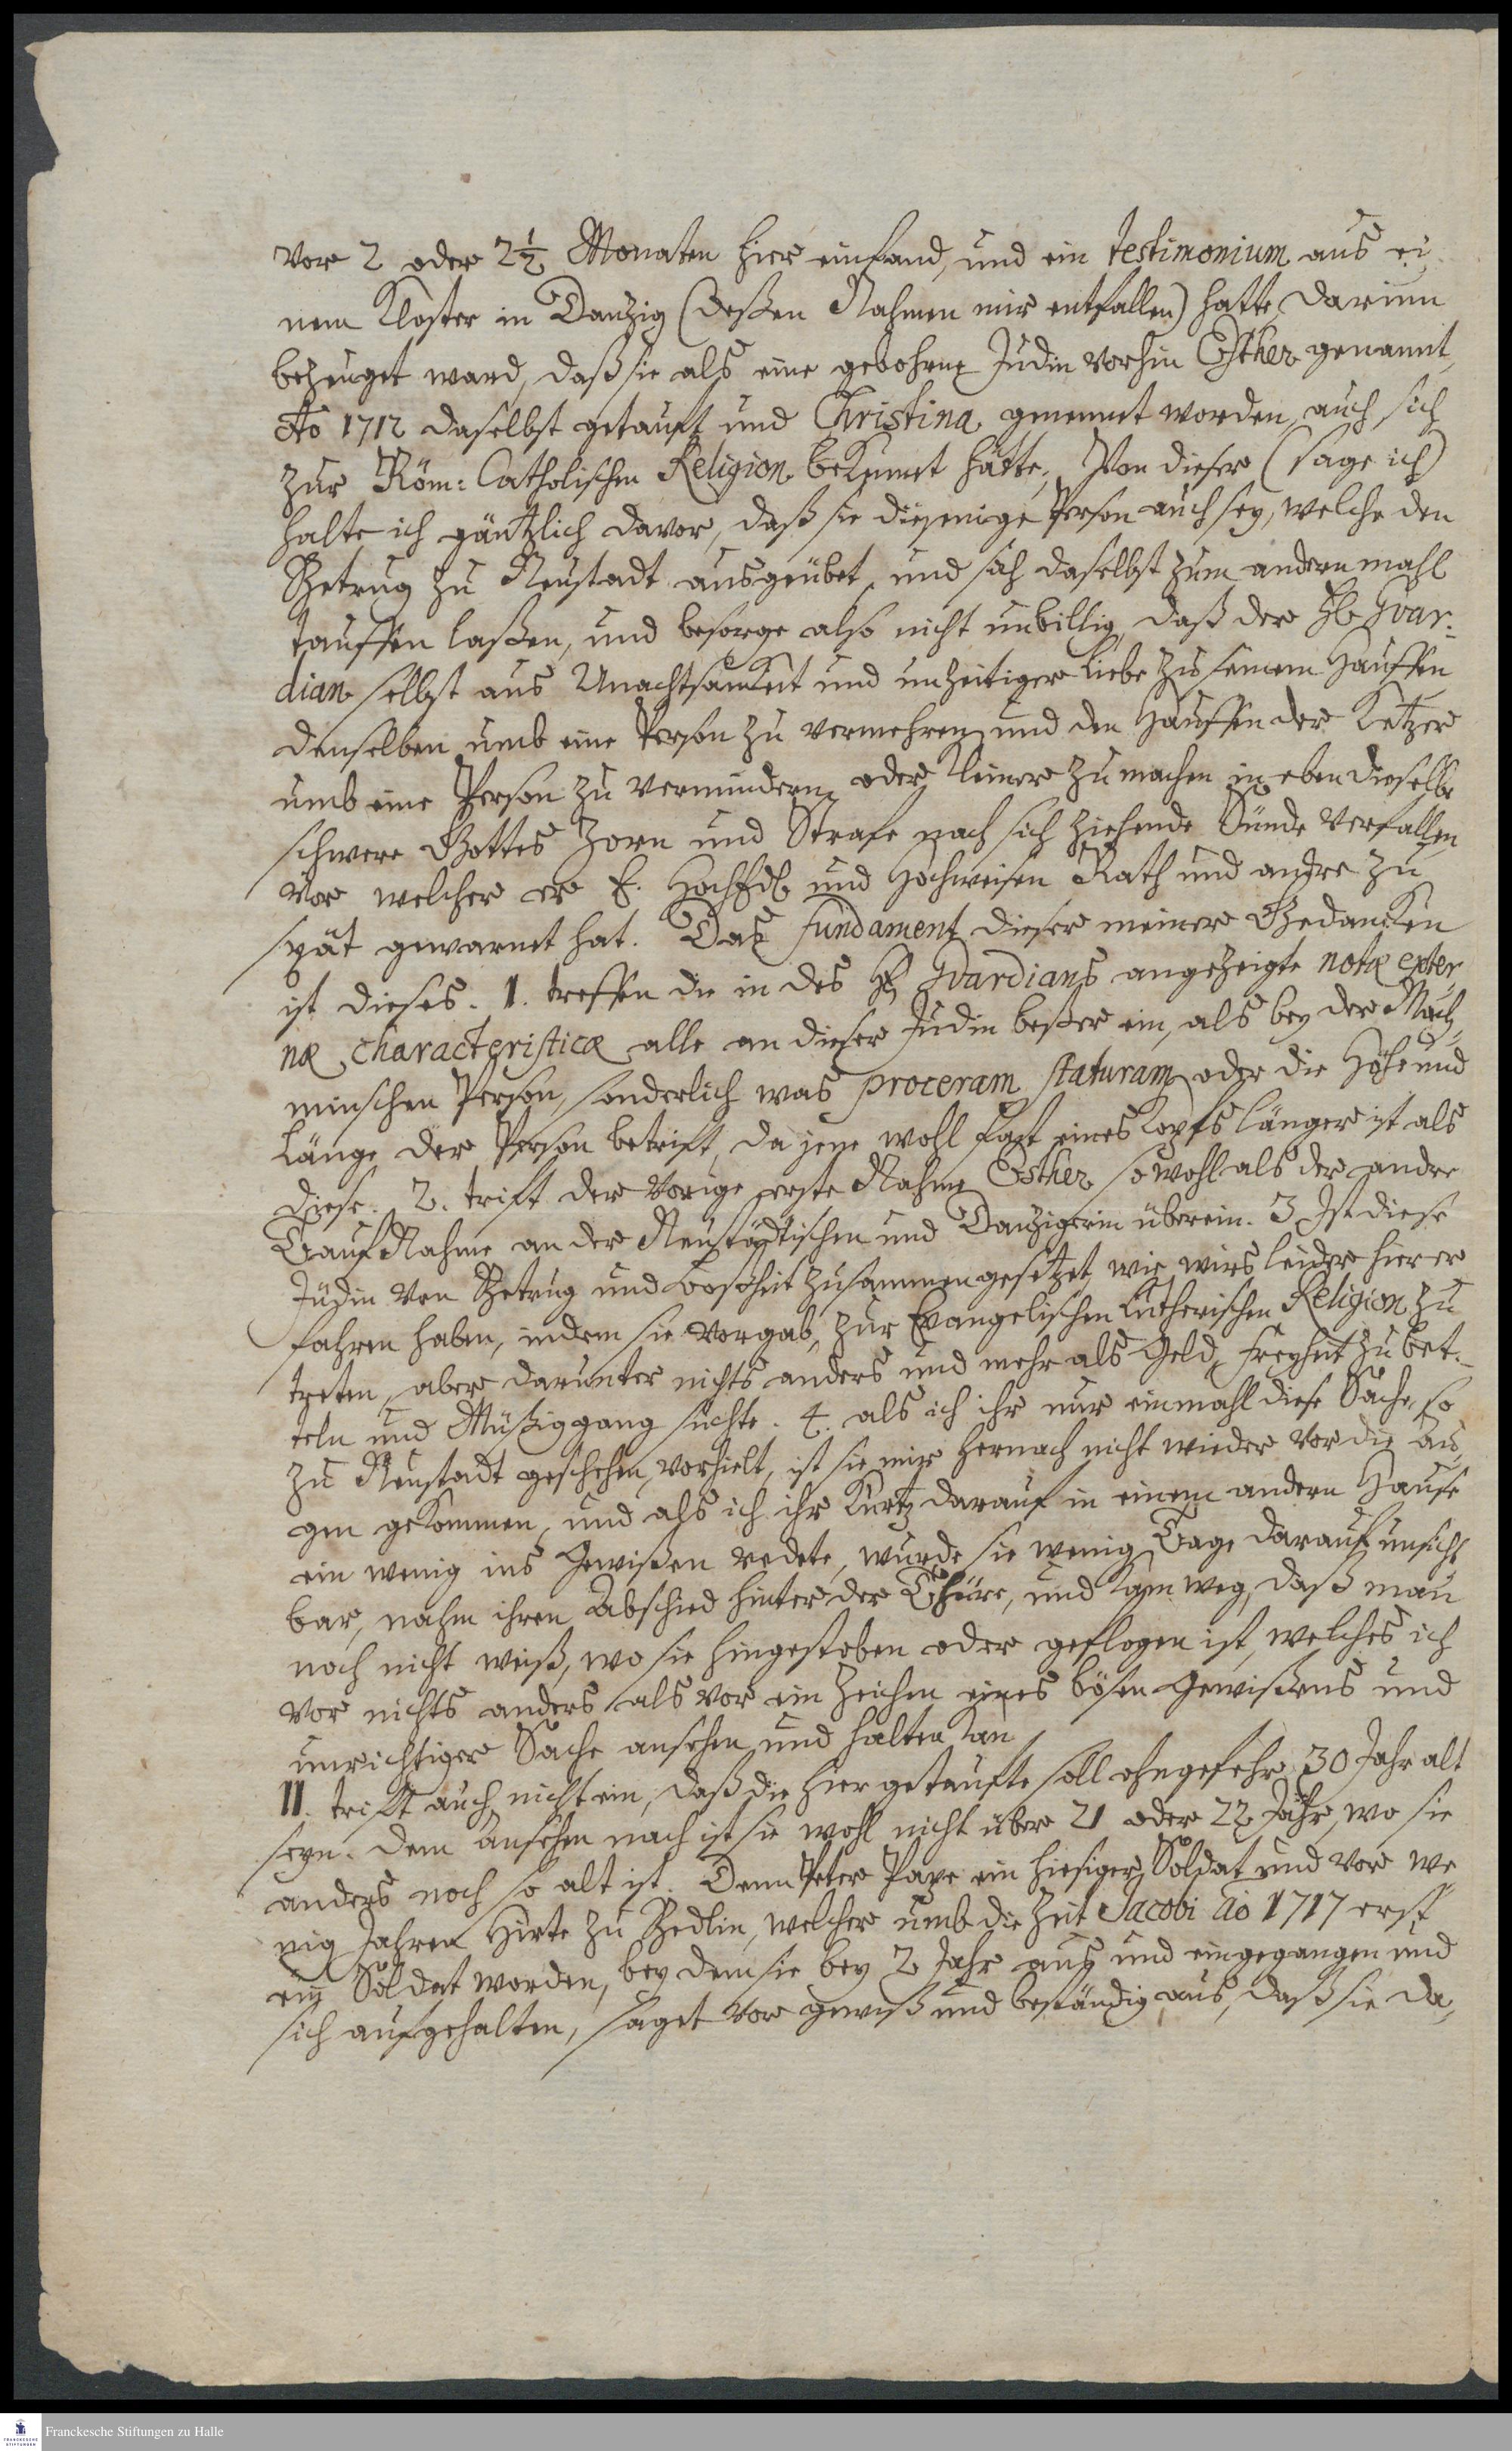 vor 2 oder 2 1/2 Monaten hier einfand, und ein testimonium aus ei¬
nem Kloster in Danzig (deßen Nahmen mir entfallen) hatte, darinn
bezeuget ward, daß sie als eine gebohrne Judin vorhin Esther genannt,
Ao 1712 daselbst getauft und Christina genennet worden, auch sich
zur Röm: Catholischen Religion bekennet hätte, Von dieser (sage ich)
halte ich gäntzlich davor, daß sie diejenige Person auch sey, welche den
Betrug zu Neustadt ausgeübet, und sich daselbst zum andern mahl
tauffen laßen, und besorge also nicht unbillig, daß der H. Gvar¬
dian selbst aus Unachtsamkeit und unzeitiger Liebe zu seinem Hauffen
denselben umb eine Person zu vermehren, und den Hauffen der Ketzer
umb eine Person zu vermindern, oder kleiner zu machen in eben dieselbe
schwere Gottes Zorn und Strafe nach sich ziehende Sünde verfallen,
vor welcher er E. HochEdl und Hochweisen Rath und andre zu
spät gewarnet hat. Das fundament dieser meiner Gedancken
ist dieses. 1. treffen die in des H. Gvardians angezeigte notæ exter¬
næ characteristicæ alle an dieser Judin beßer ein, als bey der
minschen Person, sonderlich was proceram staturam oder die Höhe und
Länge der Person betrift, da jene wohl fast eines Kopfs länger ist als
diese. 2. trift der vorige erste Nahme Esther sowohl als der andre
Tauf Nahme an der Neustädtischen und Danzigerin überein. 3. Ist diese
Jüdin von Betrug und Boßheit zusammen gesetzet, wie wirs leider hier er
fahren haben, indem sie vorgab, zur Evangelischen Lutherischen Religion zu
treten, aber darunter nichts anders und mehr als Geld, Freyheit zu bet¬
teln und Müßiggang suchte. 4. als ich ihr nur einmahl diese Sache, so
zu Neustadt geschehen, vorhielt, ist sie mir hernach nicht wieder vor die Au¬
gen gekommen, und als ich ihr kurtz darauf in einem andern Hause
ein wenig ins Gewißen redete, wurde sie wenig Tage darauf unsicht
bar, nahm ihren Abschied hinter der Thüre, und kam weg, daß man
noch nicht weiß, wo sie hingestoben oder geflogen ist, welches ich
vor nichts anders als vor ein Zeichen eines bösen Gewißens und
unrichtiger Sache ansehen und halten kan
II. trifft auch nicht ein, daß die hier getaufte soll ohngefehr 30 Jahr alt
seyn. Dem Ansehen nach ist sie wohl nicht über 21 oder 22 Jahr, wo sie
anders noch so alt ist. Denn Peter Pape ein hiesiger Soldat und vor we¬
nig Jahren Hirte zu Bedlin, welcher umb die Zeit Jacobi Ao 1717 erst
ein Soldat worden, bey dem sie bey 2 Jahr aus und eingegangen und
sich aufgehalten, saget vor gewiß und beständig aus, daß sie da¬
Franckesche Stiftungen zu Halle
FRANCKESCHE
STIFTUNGEN